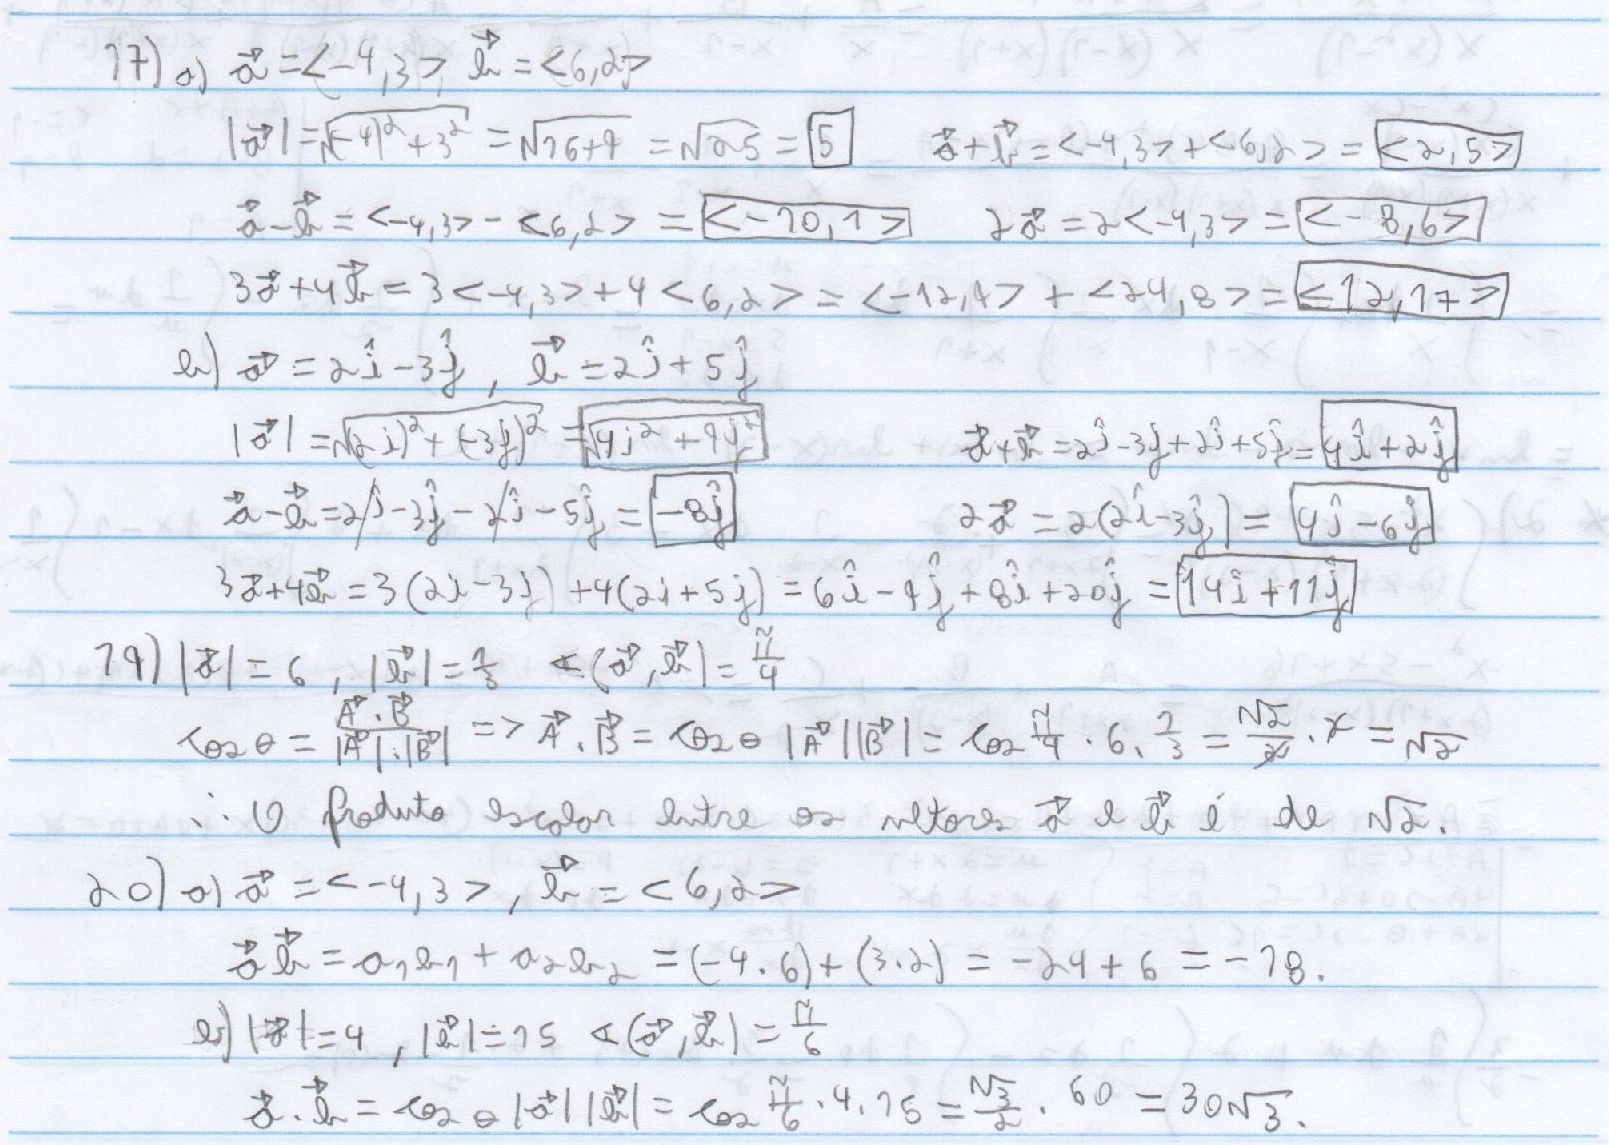 17) a) a⃗ = <-4,3>, b⃗ = <6,2>
|a⃗| = √((-4)² + 3²) = √(16+9) = √25 = 5   a⃗+b⃗ = <-4,3> + <6,2> = <2,5>
a⃗-b⃗ = <-4,3> - <6,2> = <-10,1>   2a⃗ = 2<-4,3> = <-8,6>
3a⃗+4b⃗ = 3<-4,3> + 4<6,2> = <-12,9> + <24,8> = <12,17>
b) a⃗ = 2î - 3ĵ, b⃗ = 2î + 5ĵ
|a⃗| = √((2i)² + (-3j)²) = √(4i² + 9j²)   a⃗+b⃗ = 2î - 3ĵ + 2î + 5ĵ = 4î + 2ĵ
a⃗-b⃗ = 2î - 3ĵ - 2î - 5ĵ = -8ĵ   2a⃗ = 2(2î - 3ĵ) = 4î - 6ĵ
3a⃗+4b⃗ = 3(2i - 3j) + 4(2i + 5j) = 6î - 9ĵ + 8î + 20ĵ = 14î + 11ĵ
19) |a⃗| = 6, |b⃗| = 1/3   ∢(a⃗, b⃗) = π/4
cos θ = A⃗.B⃗/|A⃗|.|B⃗| => A⃗.B⃗ = cos θ |A⃗||B⃗| = cos π/4 . 6 . 1/3 = √2/2 . 2 = √2
∴ O produto escalar entre os vetores a⃗ e b⃗ é de √2.
20) a) a⃗ = <-4,3>, b⃗ = <6,2>
a⃗ b⃗ = a₁b₁ + a₂b₂ = (-4.6) + (3.2) = -24 + 6 = -18.
b) |a⃗| = 4, |b⃗| = 15   ∢(a⃗, b⃗) = π/6
a⃗.b⃗ = cos θ |a⃗||b⃗| = cos π/6 . 4 . 15 = √3/2 . 60 = 30√3.